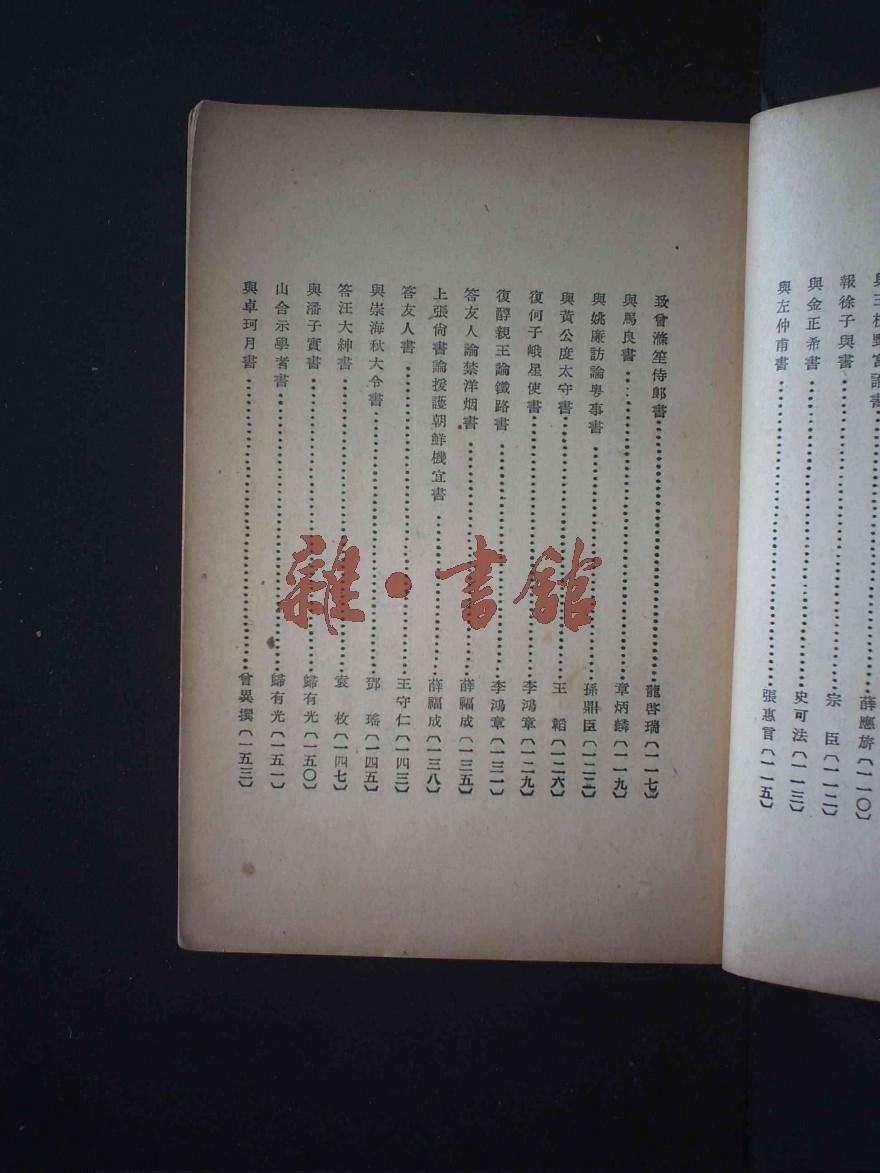 薛應旂〔一一〇〕
報徐子與書……宗　臣〔一一二〕
與金正希書……史可法〔一一三〕
與左仲甫書……張惠言〔一一五〕
致曾滌笙侍郞書……龍啓瑞〔一一七〕
與馬良書……章炳麟〔一一九〕
與姚廉訪論粵事書……孫鼎臣〔一二三〕
與黃公度太守書……王　韜〔一二六〕
復何子峨星使書……李鴻章〔一二九〕
復醇親王論鐵路書……李鴻章〔一三一〕
答友人論禁洋烟書……薛福成〔一三五〕
上張尙書論援護朝鮮機宜書……薛福成〔一三八〕
答友人書……王守仁〔一四三〕
與崇海秋大令書……鄧　瑤〔一四五〕
答汪大紳書……袁　枚〔一四七〕
與潘子實書……歸有光〔一五〇〕
山舍示學者書……歸有光〔一五一〕
與卓珂月書……曾異撰〔一五三〕
雜·書館